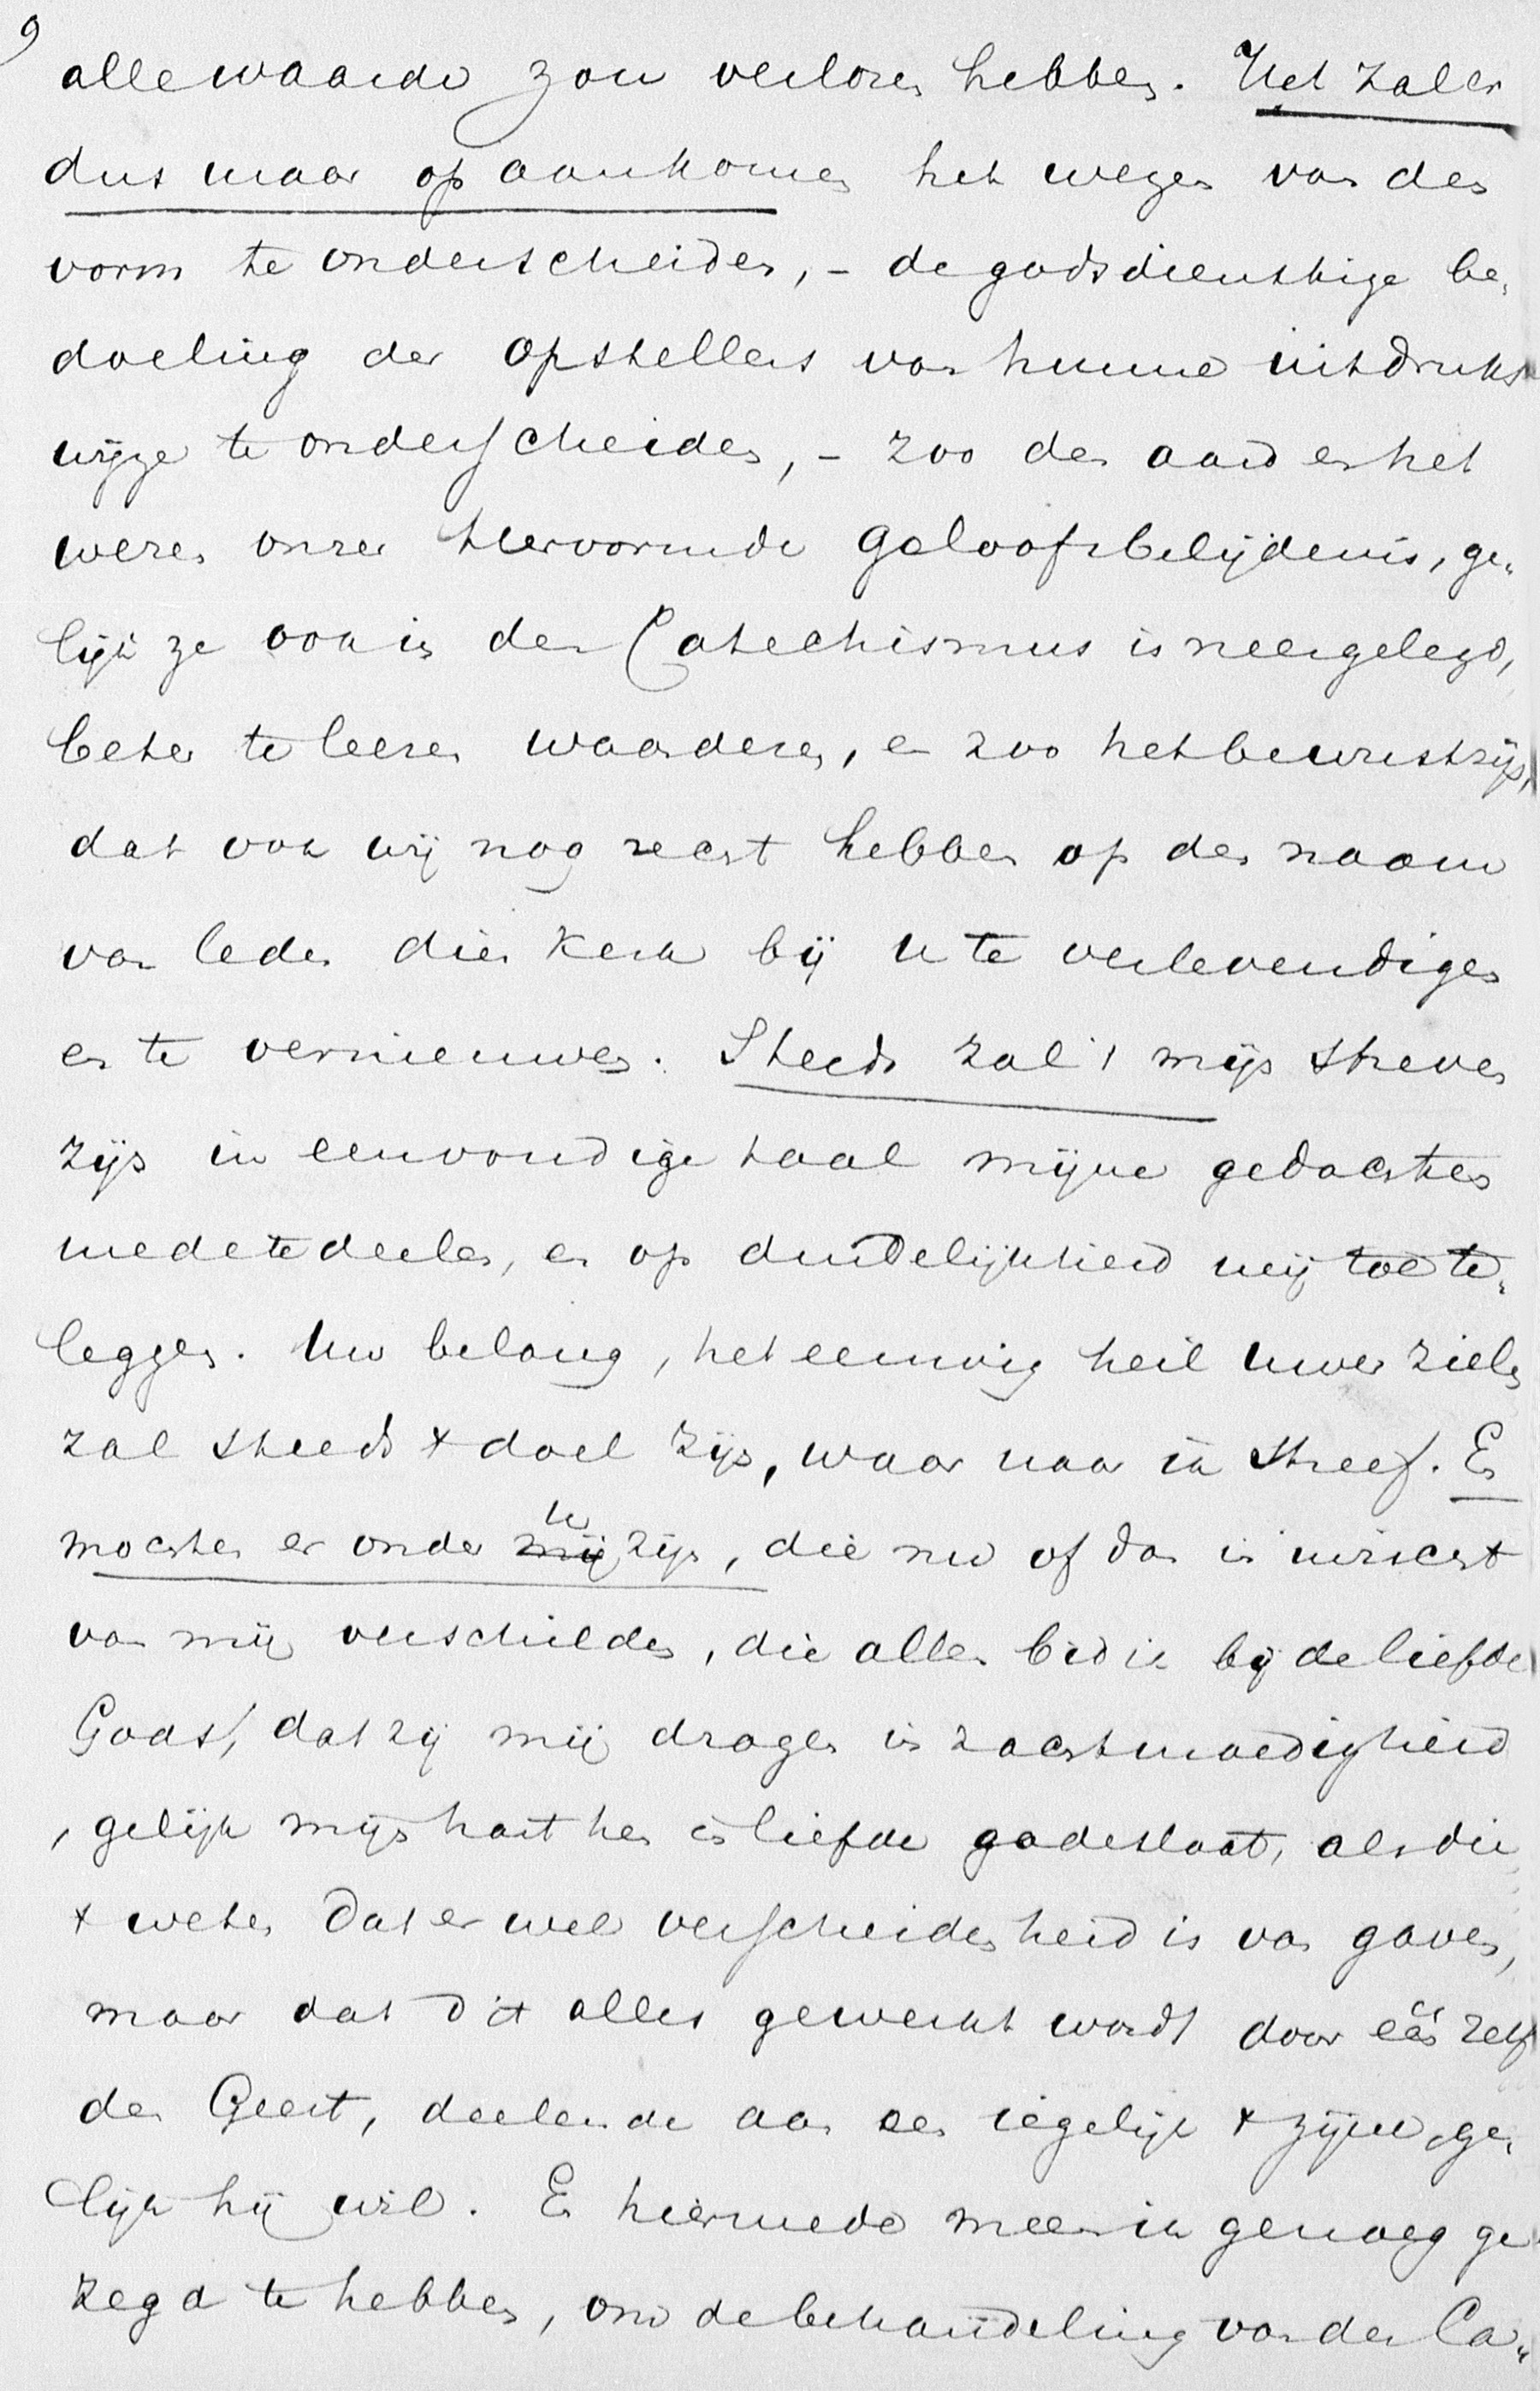 9
alle waarde zou verloren hebben. Het zal er
dus maar op aankomen het wezen van den
vorm te onderscheiden, - de godsdienstige be„
doeling der opstellers van hunne uitdruks
wijze te onderscheiden, - zoo den aard en het
wezen onzer Hervormde Geloofsbelijdenis, ge„
lijk ze ook in den Catechismus is neergelegd,
beter te leeren waarderen, en zoo het bewustzijn,
dat ook wij nog recht hebben op den naam
van leden dier Kerk bij u te verlevendigen
en te vernieuwen. Steeds zal 't mijn streven
zijn in eenvoudige taal mijne gedachten
mede te deelen, en op duidelijkheid mij toe te„
leggen. Uw belang, het eeuwig heil uwer zielen
zal steeds 't doel zijn, waar naar ik streef. En
mochten er onder u mij zijn, die nu of dan in inzicht
van mij verschilden, die allen bid ik bij de liefde
Gods, dat zij mij dragen in zachtmoedigheid
, gelijk mijn hart hen in liefde gadeslaat, als die
't weten dat er wel verscheidenheid is van gaven,
maar dat dit alles gewerkt wordt door één zelf
den Geest, deelende aan een iegelijk 't zijne, ge„
lijk hij wil. En hiermede meen ik genoeg ge„
zegd te hebben, om de behandeling van den Ca„